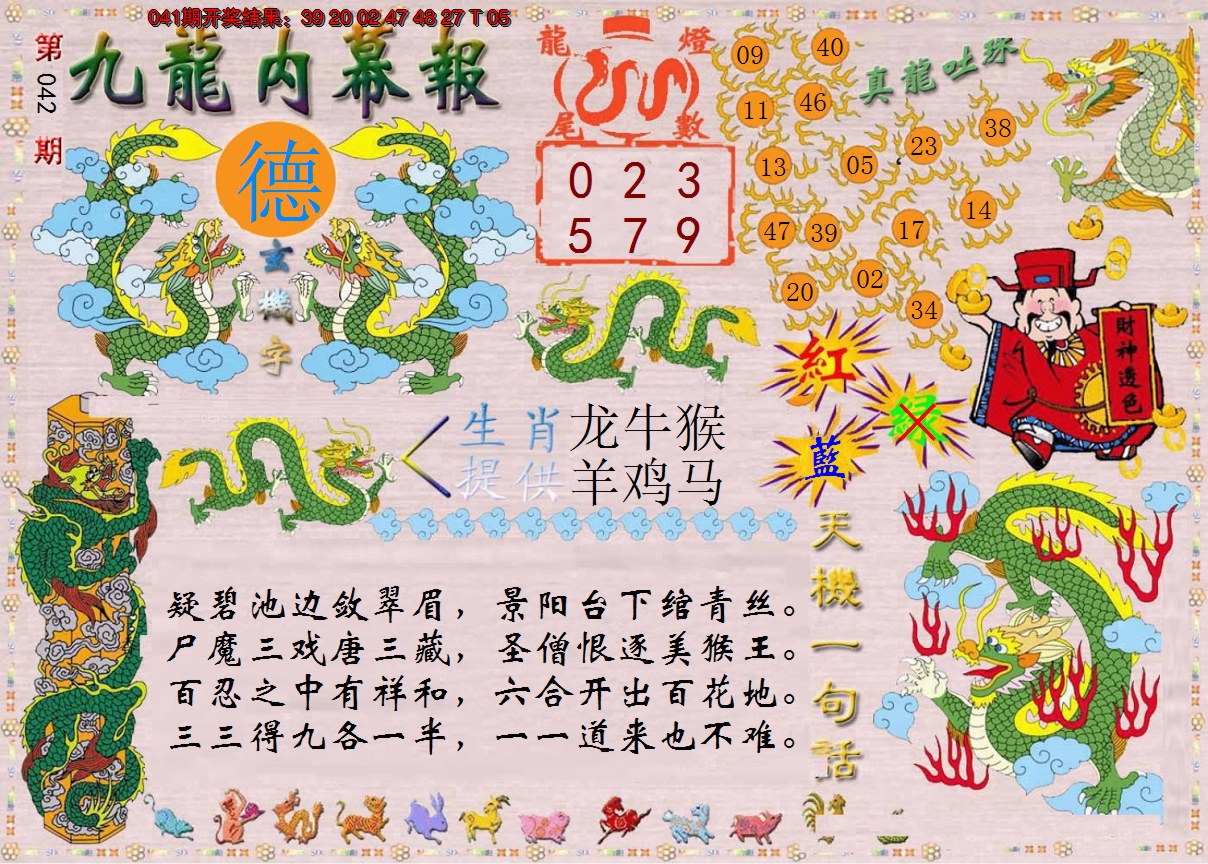 041期开奖结果：39 20 02 47 48 27 T 05
第042期
九龍内幕報
德
玄機字
龍燈
尾數
0 2 3
5 7 9
真龍吐珠
09 40
11 46
13 05 23 38
47 39 17 14
20 02 34
紅
绿
藍
財神透色
生肖 龙牛猴
提供 羊鸡马
天機一句话
疑碧池边敛翠眉，景阳台下绾青丝。
尸魔三戏唐三藏，圣僧恨逐美猴王。
百忍之中有祥和，六合开出百花地。
三三得九各一半，一一道来也不难。